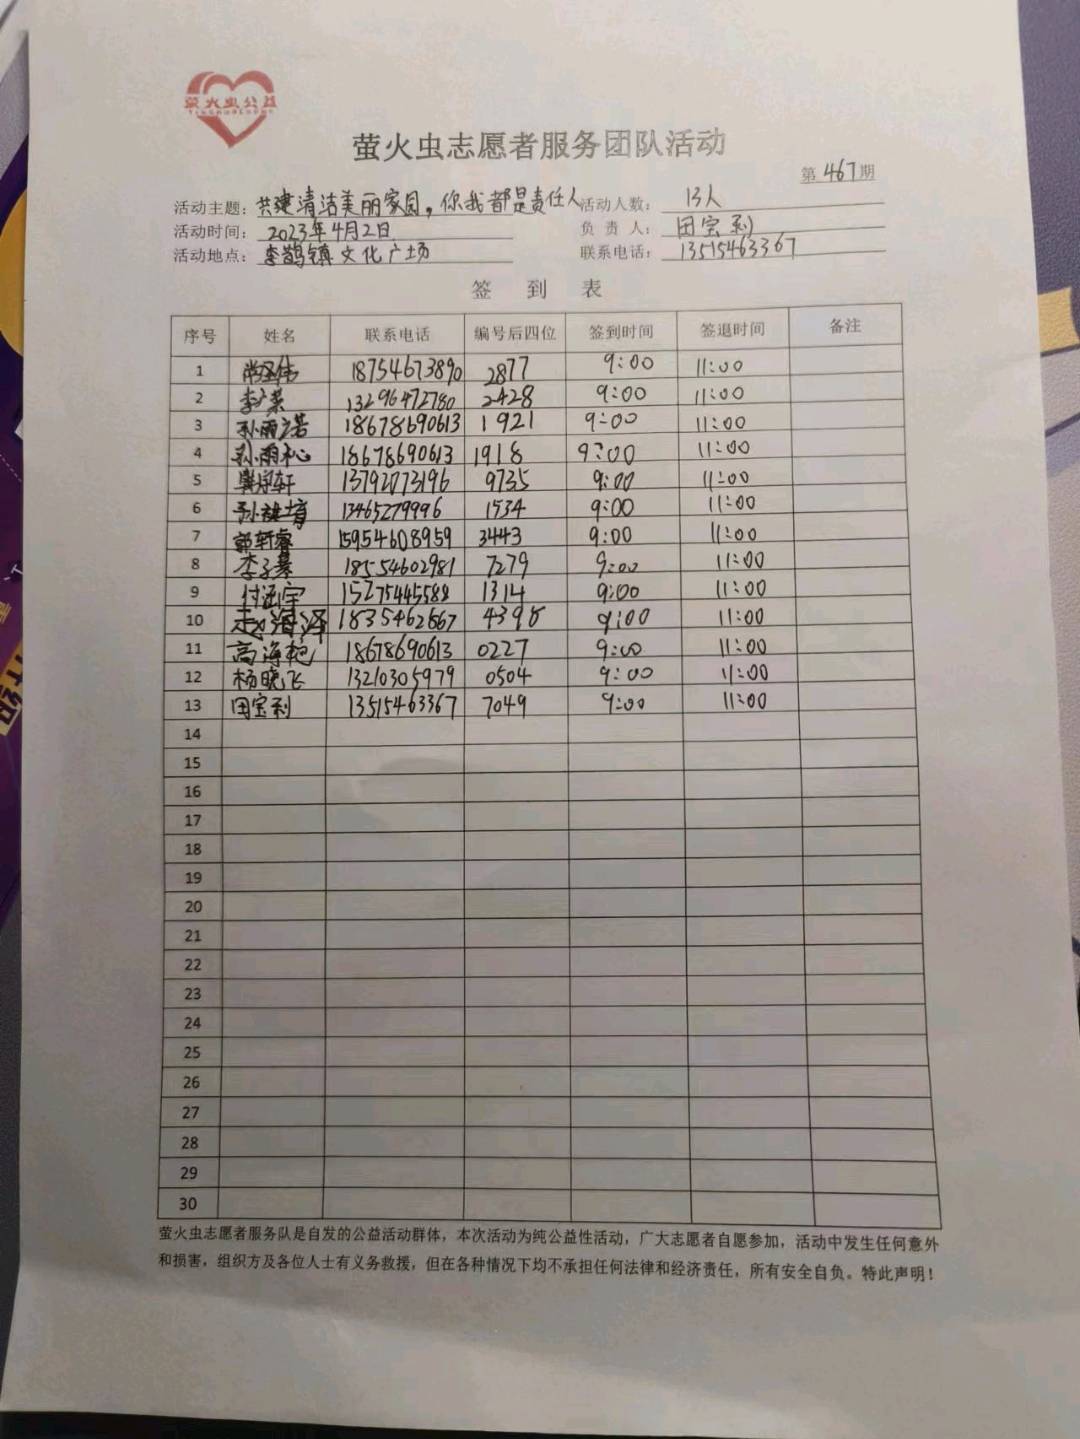 萤火虫公益
萤火虫志愿者服务团队活动
第 467 期
活动主题：共建清洁美丽家园，你我都是责任人 活动人数：13人
活动时间：2023年4月2日 负责人：田宝利
活动地点：李鹊镇文化广场 联系电话：13515463367
签到表
序号 姓名 联系电话 编号后四位 签到时间 签退时间 备注
1 18754673890 2877 9:00 11:00
2 13296472780 2428 9:00 11:00
3 孙雨诺 18678690613 1921 9:00 11:00
4 孙雨沁 18678690613 1918 9:00 11:00
5 13792073196 9735 9:00 11:00
6 13465279996 1534 9:00 11:00
7 郭轩睿 15954608959 3443 9:00 11:00
8 李子慕 18554602981 7279 9:00 11:00
9 付涵宇 15275445588 1314 9:00 11:00
10 赵海泽 1835462667 4398 9:00 11:00
11 高海艳 18678690613 0227 9:00 11:00
12 杨晓飞 13210305979 0504 9:00 11:00
13 田宝利 13515463367 7049 9:00 11:00
14
15
16
17
18
19
20
21
22
23
24
25
26
27
28
29
30
萤火虫志愿者服务队是自发的公益活动群体，本次活动为纯公益性活动，广大志愿者自愿参加，活动中发生任何意外
和损害，组织方及各位人士有义务救援，但在各种情况下均不承担任何法律和经济责任，所有安全自负。特此声明！